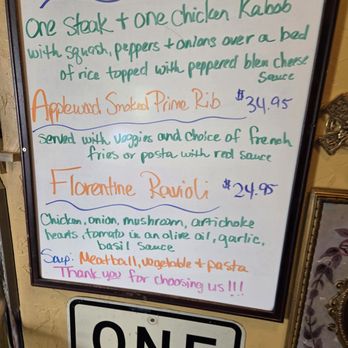 One Steak + one chicken Kabob
with squash, peppers + onions over a bed
of rice topped with peppered bleu cheese
sauce
Applewood Smoked Prime Rib $34.95
served with veggies and choice of french
fries or pasta with red sauce
Florentine Ravioli $24.95
Chicken, onion, mushroom, artichoke
hearts, tomato in an olive oil, garlic,
basil sauce
Soup: Meatball, vegetable + pasta
Thank you for choosing us!!!
ONE